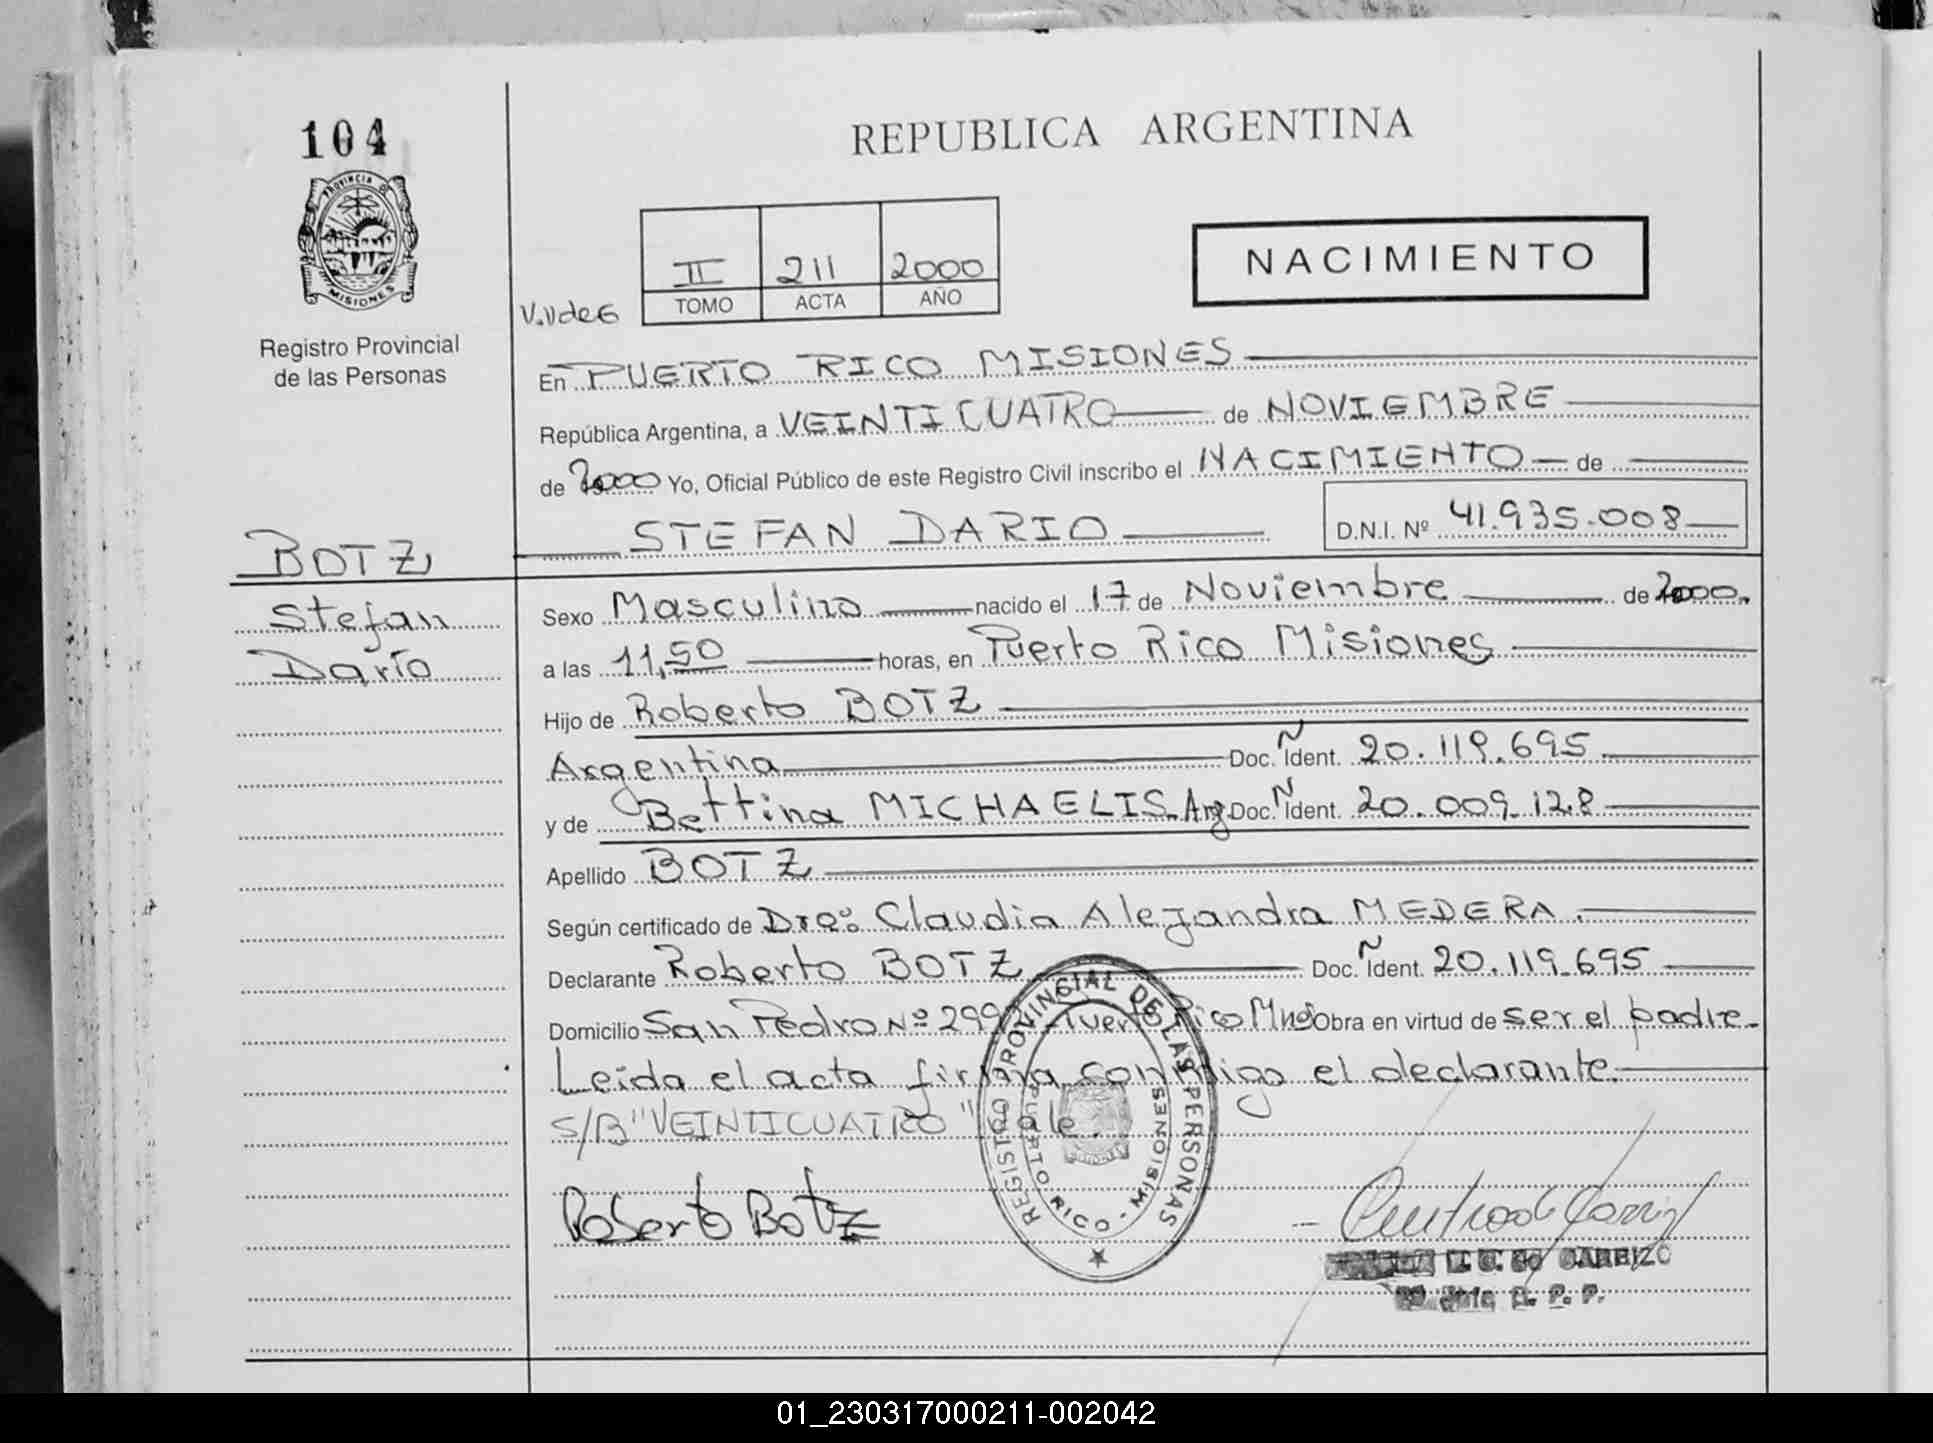 104
PROVINCIA DE
MISIONES
Registro Provincial
de las Personas
REPUBLICA ARGENTINA
II 211 2000
TOMO ACTA AÑO
NACIMIENTO
En PUERTO RICO MISIONES
República Argentina, a VEINTICUATRO de NOVIEMBRE
de 2000 Yo, Oficial Público de este Registro Civil inscribo el NACIMIENTO de
STEFAN DARIO D.N.I. Nº 41.935.008
BOTZ
Stefan
Darío
Sexo Masculino nacido el 17 de Noviembre de 2000.
a las 11,50 horas, en Puerto Rico Misiones
Hijo de Roberto BOTZ
Argentina Doc. N Ident. 20.119.695
y de Bettina MICHAELIS. Arg. Doc. N Ident. 20.009.128
Apellido BOTZ
Según certificado de Dra: Claudia Alejandra MEDERA.
Declarante Roberto BOTZ Doc. N Ident. 20.119.695
Domicilio San Pedro Nº 299 Puerto Rico Mns Obra en virtud de ser el padre.
Leida el acta firma conmigo el declarante.
S/B "VEINTICUATRO" Vale.
REGISTRO PROVINCIAL DE LAS PERSONAS
PUERTO RICO - MISIONES
Roberto Botz
CARRIZO
01_230317000211-002042